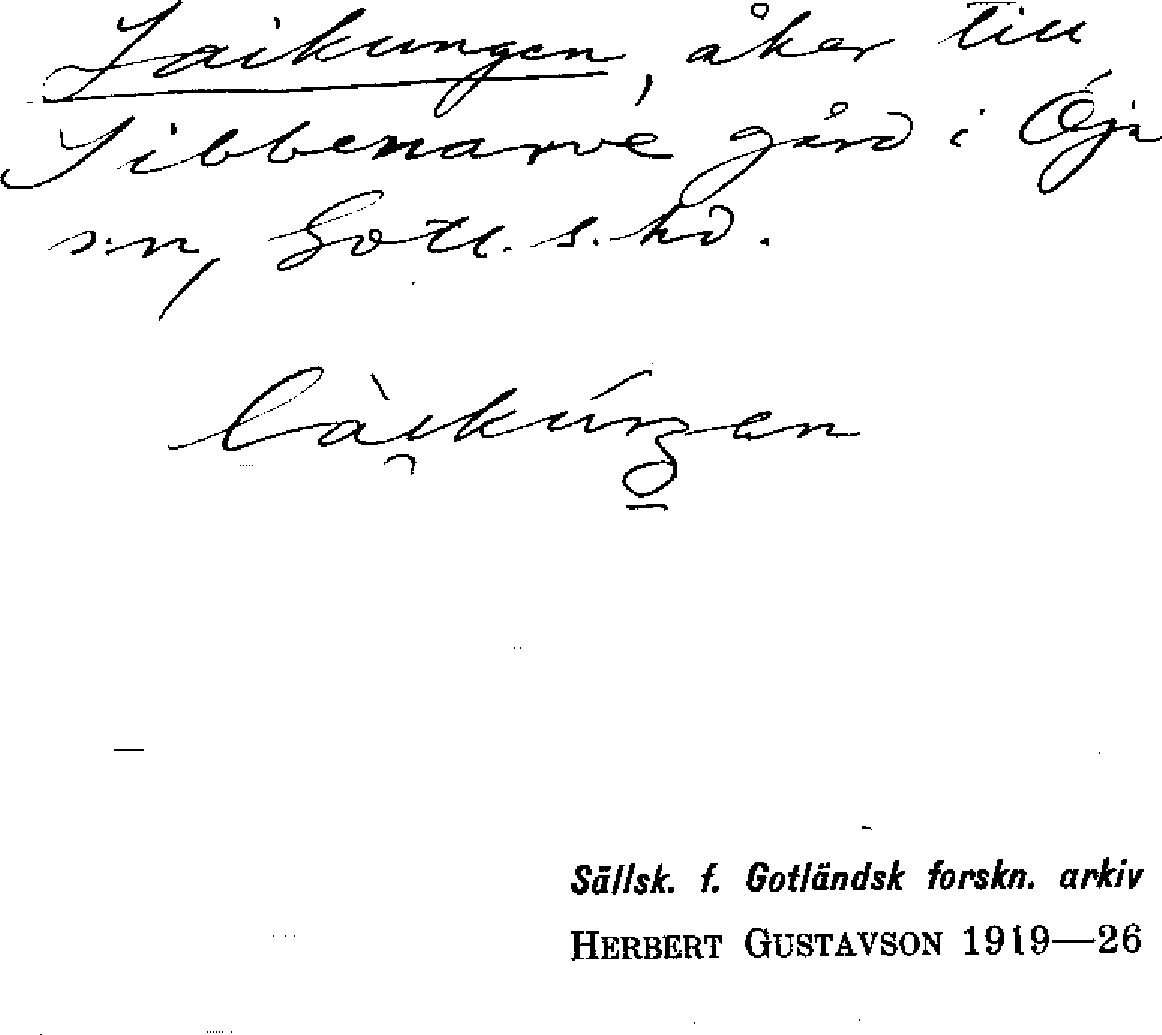 Laikungen, åker till
Sibbenarve gård i Öja
s:n, Gotl. s. hd.
Sällsk. f. Gotländsk forskn. arkiv
HERBERT GUSTAVSON 1919—26